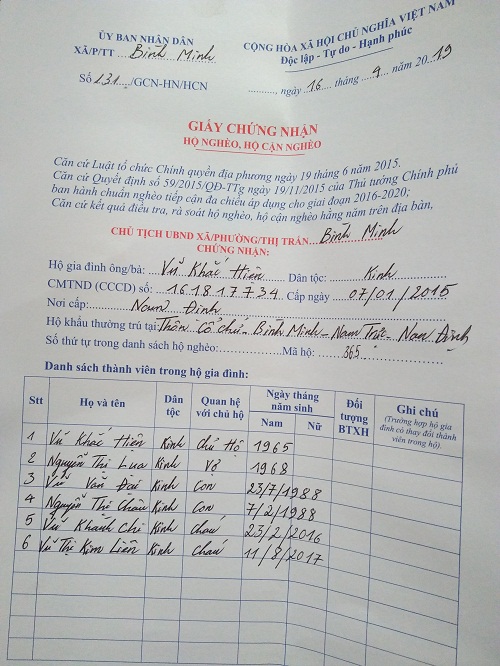 ỦY BAN NHÂN DÂN
XÃ/P/TT Bình Minh
Số 231 /GCN-HN/HCN
CỘNG HÒA XÃ HỘI CHỦ NGHĨA VIỆT NAM
Độc lập - Tự do - Hạnh phúc
........, ngày 16 tháng 9 năm 2019
GIẤY CHỨNG NHẬN
HỘ NGHÈO, HỘ CẬN NGHÈO
Căn cứ Luật tổ chức Chính quyền địa phương ngày 19 tháng 6 năm 2015.
Căn cứ Quyết định số 59/2015/QĐ-TTg ngày 19/11/2015 của Thủ tướng Chính phủ
ban hành chuẩn nghèo tiếp cận đa chiều áp dụng cho giai đoạn 2016-2020;
Căn cứ kết quả điều tra, rà soát hộ nghèo, hộ cận nghèo hằng năm trên địa bàn,
CHỦ TỊCH UBND XÃ/PHƯỜNG/THỊ TRẤN Bình Minh
CHỨNG NHẬN:
Hộ gia đình ông/bà: Vũ Khắc Hiên Dân tộc: Kinh
CMTND (CCCD) số: 161817734 Cấp ngày 07/01/2015
Nơi cấp: Nam Định
Hộ khẩu thường trú tại: Thôn Cổ chử - Bình Minh - Nam Trực - Nam Định
Số thứ tự trong danh sách hộ nghèo: Mã hộ: 365
Danh sách thành viên trong hộ gia đình:
Stt Họ và tên Dân tộc Quan hệ với chủ hộ Ngày tháng năm sinh Nam Nữ Đối tượng BTXH Ghi chú (Trường hợp hộ gia đình có thay đổi thành viên trong hộ).
1 Vũ Khắc Hiên Kinh Chủ Hộ 1965
2 Nguyễn Thị Lụa Kinh Vợ 1968
3 Vũ Văn Đại Kinh Con 23/7/1988
4 Nguyễn Thị Châu Kinh Con 7/2/1988
5 Vũ Khánh Chi Kinh cháu 23/2/2016
6 Vũ Thị Kim Liên Kinh cháu 11/8/2017